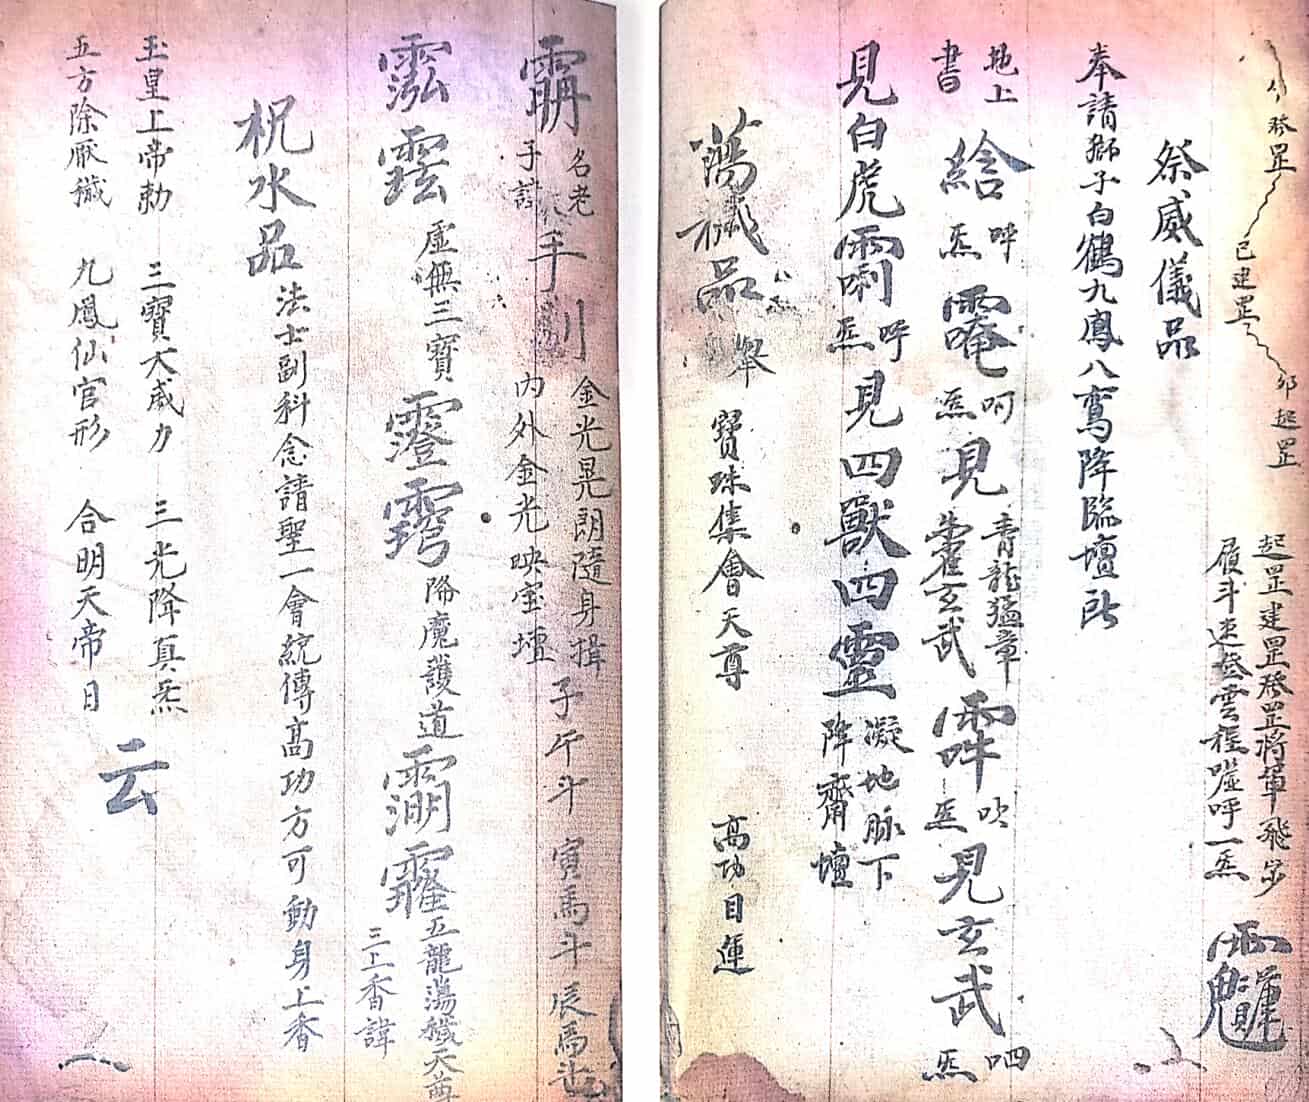 發罡
已建罡
卯起罡
起罡建罡發罡將軍飛步
履斗速登雲程噓呼一炁
祭威儀品
奉請獅子白鶴九鳳八鸞降臨壇所
地上
書
炁
呵炁見青龍猛章
玄武
吹炁見玄武
呬炁
見白虎
呼炁見四獸四靈凝地脉下
降齋壇
蕩穢品
舉 寶珠集會天尊 高功目運
名老
子諱
手
金光晃朗隨身
內外金光映宝壇
子午斗 寅馬斗 辰馬
虛無三寶
降魔護道
五龍蕩穢天尊
三上香諱
祝水品法士副科念請聖一會統傳高功方可動身上香
玉皇上帝勅 三寶大威力 三光降真炁
五方除厭穢 九鳳仙官形 合明天帝日
云